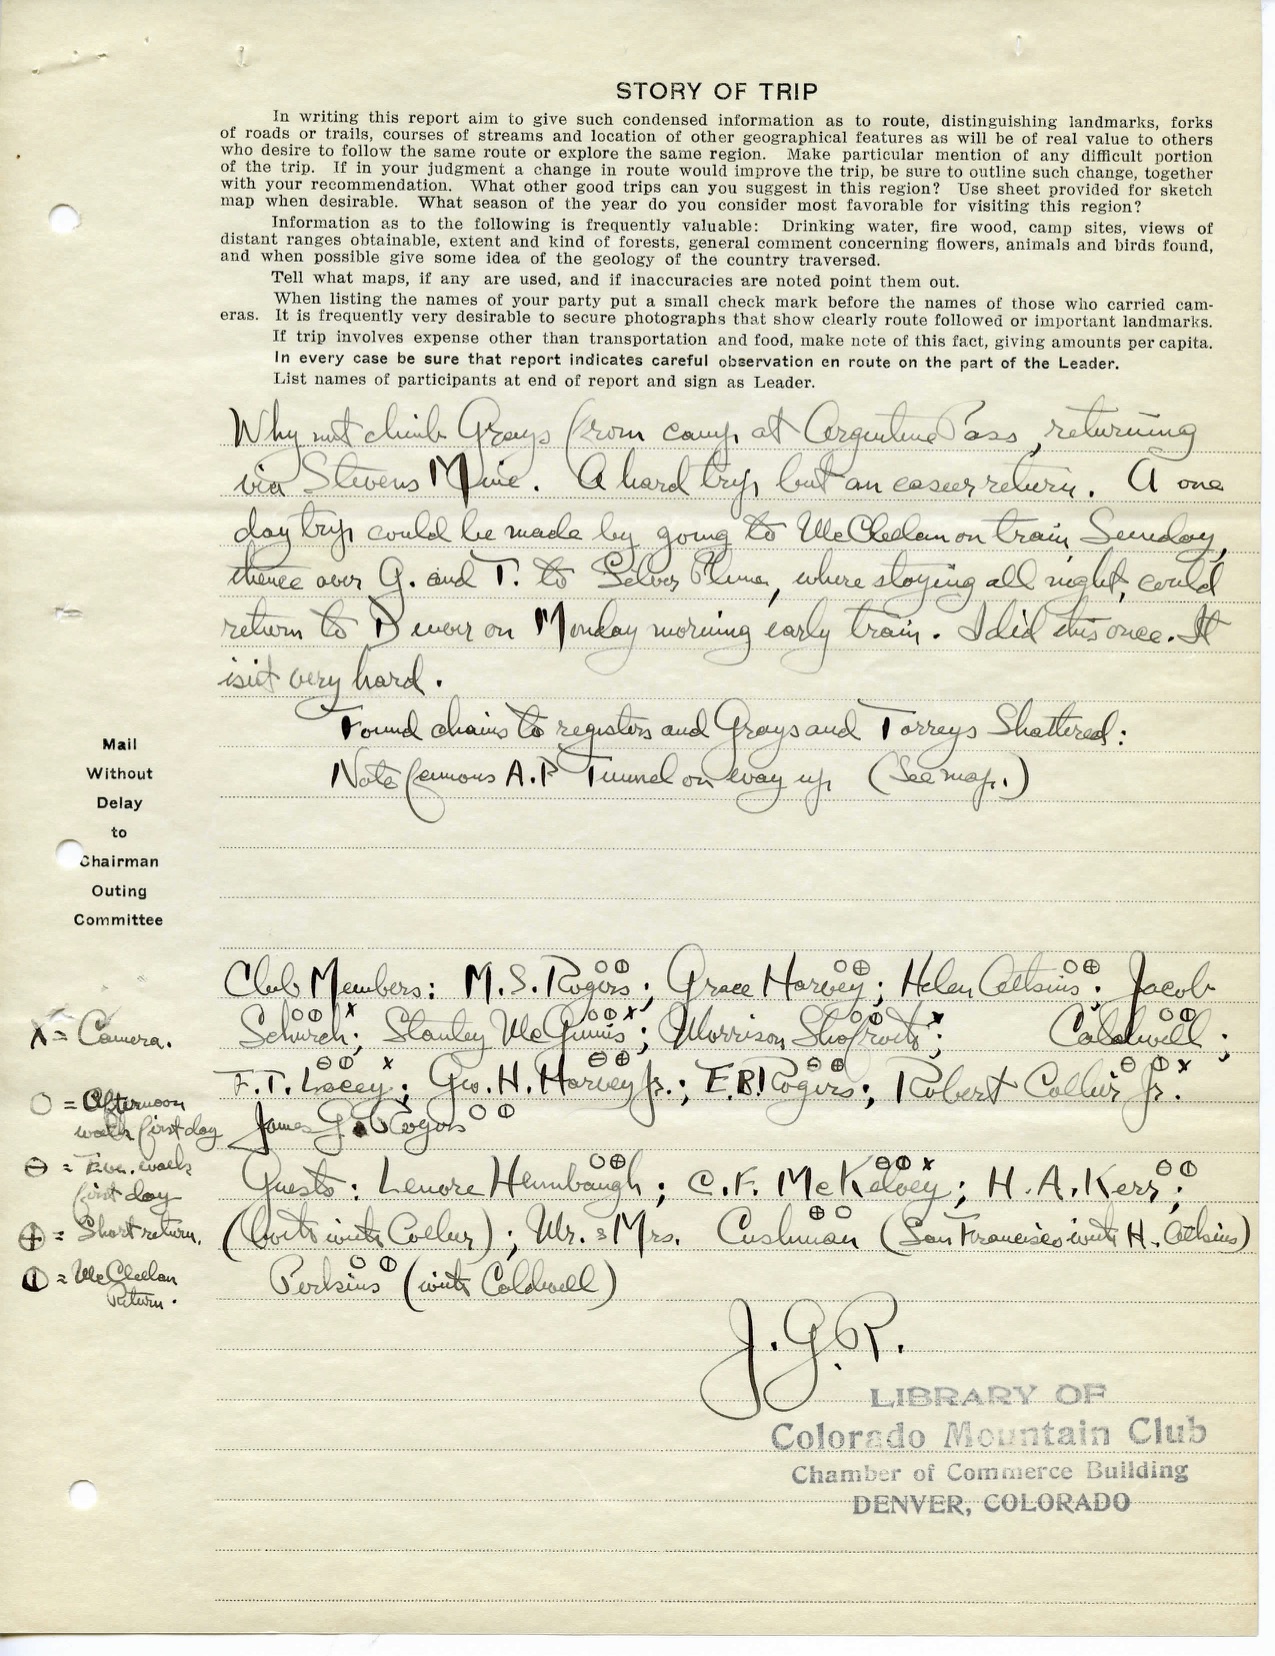 STORY OF TRIP
In writing this report aim to give such condensed information as to route, distinguishing landmarks, forks
of roads or trails, courses of streams and location of other geographical features as will be of real value to others
who desire to follow the same route or explore the same region. Make particular mention of any difficult portion
of the trip. If in your judgment a change in route would improve the trip, be sure to outline such change, together
with your recommendation. What other good trips can you suggest in this region? Use sheet provided for sketch
map when desirable. What season of the year do you consider most favorable for visiting this region?
Information as to the following is frequently valuable: Drinking water, fire wood, camp sites, views of
distant ranges obtainable, extent and kind of forests, general comment concerning flowers, animals and birds found,
and when possible give some idea of the geology of the country traversed.
Tell what maps, if any are used, and if inaccuracies are noted point them out.
When listing the names of your party put a small check mark before the names of those who carried cam-
eras. It is frequently very desirable to secure photographs that show clearly route followed or important landmarks.
If trip involves expense other than transportation and food, make note of this fact, giving amounts per capita.
In every case be sure that report indicates careful observation en route on the part of the Leader.
List names of participants at end of report and sign as Leader.
Why not climb Grays from camp at Argentine Pass, returning
via Stevens Mine. A hard trip but an easier return. A one
day trip could be made by going to McClellan on train Sunday,
thence over G. and T. to Silver Plume, where staying all night, could
return to Denver on Monday morning early train. I did this once. It
isn't very hard.
Found chains to registers and Grays and Torreys Shattered:
Note famous A.P. Tunnel on way up (See map.)
Mail
Without
Delay
to
Chairman
Outing
Committee
Club Members: M. S. Rogers; Grace Harvey; Helen Atkins; Jacob
Schürch; Stanley McGinnis; Morrison Shafroth; Caldwell;
F. T. Lacey; Geo. H. Harvey Jr.; E.B. Rogers; Robert Collier Jr.
James G. Rogers
Guests: Lenore Heimbaugh; C. F. McKelvey; H. A. Kerr;
(both with Collier); Mr. & Mrs. Cushman (San Francisco with H. Atkins)
Perkins (with Caldwell)
X = Camera.
○ = Afternoon
walk first day
⊖ = Eve. walk
first day
⊕ = Short return.
⦶ = McClellan
Return.
J. G. R.
LIBRARY OF
Colorado Mountain Club
Chamber of Commerce Building
DENVER, COLORADO